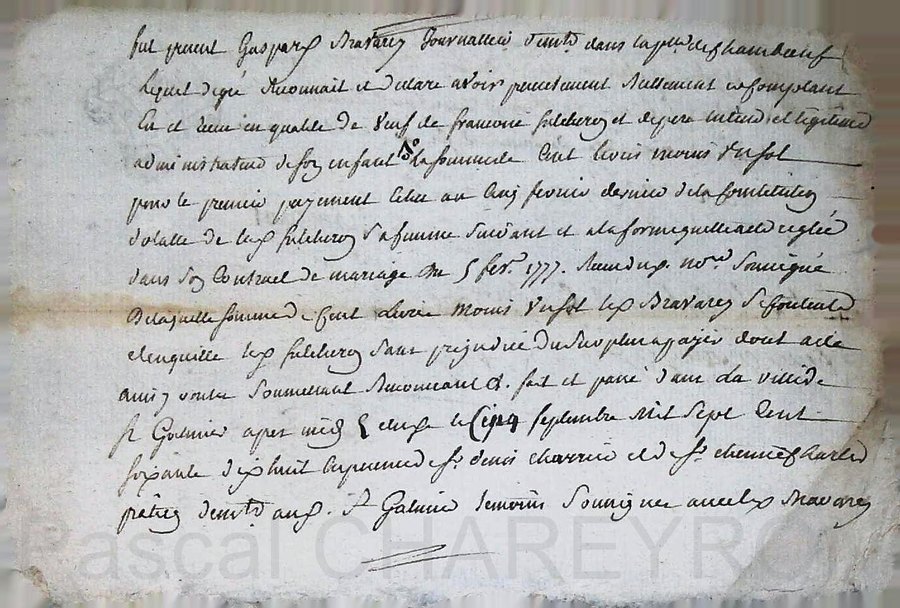 fut present Gaspard Bravard Journallier demt dans la psse de Chambœuf
lequel de gré reconnait et declare avoir presentement reellement et comptant
Eu et receu en qualité de veuf de francoise et de pere
administrateur de son enfant la somme de Cent livres moins un sol
pour le premier payement Echu au cinq fevrier dernier de la constitution
dotalle de sa femme suivant et a la forme quelle a eté reglée
dans son Contract de mariage du 5 fevr. 1777. Receu du nore soussigné
De laquelle somme de Cent Livres moins un sol led Bravard se contente
et en quitte led sans prejudice du surplus a payer dont acte
ainsy voulu Soumettant Renoncant &. fait et passé dans La ville de
St Galmier apres midy le Cinq septembre mil sept Cent
soixante dix huit En presence de Sr denis et de Sr
demt aud. St Galmier temoins Soussignes avec led Bravard
Pascal CHAREYRON